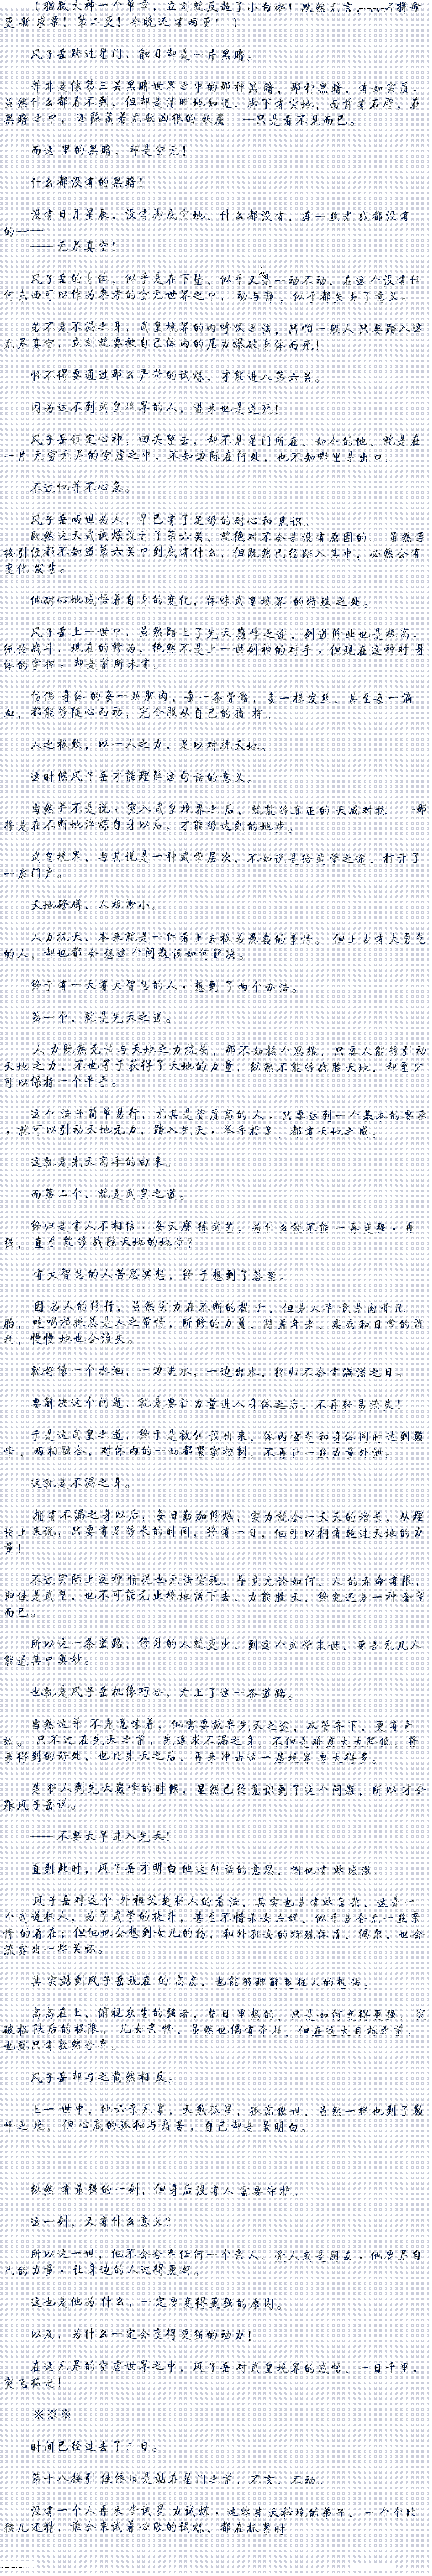 （猫腻大神一个单章，立刻就反超了小白啦！默然无言，、、、好拼命
更新求票！第二更！今晚还有两更！）
风子岳跨过星门，触目却是一片黑暗。
并非是像第三关黑暗世界之中的那种黑暗，那种黑暗，有如实质，
虽然什么都看不到，但却是清晰地知道，脚下有实地，面前有石壁，在
黑暗之中，还隐藏着无数凶狠的妖魔——只是看不见而已。
而这里的黑暗，却是空无！
什么都没有的黑暗！
没有日月星辰，没有脚底实地，什么都没有，连一丝光线都没有
的——
——无尽真空！
风子岳的身体，似乎是在下坠，似乎又是一动不动，在这个没有任
何东西可以作为参考的空无世界之中，动与静，似乎都失去了意义。
若不是不漏之身，武皇境界的内呼吸之法，只怕一般人只要踏入这
无尽真空，立刻就要被自己体内的压力爆破身体而死！
怪不得要通过那么严苛的试炼，才能进入第六关。
因为达不到武皇境界的人，进来也是送死！
风子岳镇定心神，回头望去，却不见星门所在，如今的他，就是在
一片无穷无尽的空虚之中，不知边际在何处，也不知哪里是出口。
不过他并不心急。
风子岳两世为人，早已有了足够的耐心和见识。
既然这天武试炼设计了第六关，就绝对不会是没有原因的。虽然连
接引使都不知道第六关中到底有什么，但既然已经踏入其中，必然会有
变化发生。
他耐心地感悟着自身的变化，体味武皇境界的特殊之处。
风子岳上一世中，虽然踏上了先天巅峰之途，剑道修业也是极高，
纯论战斗，现在的修为，绝然不是上一世剑神的对手，但现在这种对身
体的掌控，却是前所未有。
仿佛身体的每一块肌肉，每一条骨骼，每一根发丝，甚至每一滴
血，都能够随心而动，完全服从自己的指挥。
人之极致，以一人之力，足以对抗天地。
这时候风子岳才能理解这句话的意义。
当然并不是说，突入武皇境界之后，就能够真正的天威对抗——那
将是在不断地淬炼自身以后，才能够达到的地步。
武皇境界，与其说是一种武学层次，不如说是给武学之途，打开了
一扇门户。
天地磅礴，人极渺小。
人力抗天，本来就是一件看上去极为愚蠢的事情。但上古有大勇气
的人，却也都会想这个问题该如何解决。
终于有一天有大智慧的人，想到了两个办法。
第一个，就是先天之道。
人力既然无法与天地之力抗衡，那不如换个思维，只要人能够引动
天地之力，不也等于获得了天地的力量，纵然不能够战胜天地，却至少
可以保持一个平手。
这个法子简单易行，尤其是资质高的人，只要达到一个基本的要求
，就可以引动天地元力，踏入先天，举手投足，都有天地之威。
这就是先天高手的由来。
而第二个，就是武皇之道。
终归是有人不相信，每天磨练武艺，为什么就不能一再变强，再
强，直至能够战胜天地的地步？
有大智慧的人苦思冥想，终于想到了答案。
因为人的修行，虽然实力在不断的提升，但是人毕竟是肉骨凡
胎，吃喝拉撒总是人之常情，所修的力量，随着年老、疾病和日常的消
耗，慢慢地也会流失。
就好像一个水池，一边进水，一边出水，终归不会有满溢之日。
要解决这个问题，就是要让力量进入身体之后，不再轻易流失！
于是这武皇之道，终于是被创设出来，体内玄气和身体同时达到巅
峰，两相融合，对体内的一切都紧密控制，不再让一丝力量外泄。
这就是不漏之身。
拥有不漏之身以后，每日勤加修炼，实力就会一天天的增长，从理
论上来说，只要有足够长的时间，终有一日，他可以拥有超过天地的力
量！
不过实际上这种情况也无法实现，毕竟无论如何，人的寿命有限，
即使是武皇，也不可能无止境地活下去，力能胜天，终究还是一种奢望
而已。
所以这一条道路，修习的人就更少，到这个武学末世，更是无几人
能通其中奥妙。
也就是风子岳机缘巧合，走上了这一条道路。
当然这并不是意味着，他需要放弃先天之途，双管齐下，更有奇
效。只不过在先天之前，先追求不漏之身，不但是难度大大降低，将
来得到的好处，也比先天之后，再来冲击这一层境界要大得多。
楚狂人到先天巅峰的时候，显然已经意识到了这个问题，所以才会
跟风子岳说。
——不要太早进入先天！
直到此时，风子岳才明白他这句话的意思，倒也有些感激。
风子岳对这个外祖父楚狂人的看法，其实也是有些复杂，这是一
个武道狂人，为了武学的提升，甚至不惜杀女杀婿，似乎是全无一丝亲
情的存在；但他也会想到女儿的伤，和外孙女的特殊体质，偶尔，也会
流露出一些关怀。
其实站到风子岳现在的高度，也能够理解楚狂人的想法。
高高在上，俯视众生的强者，整日里想的，只是如何变得更强，突
破极限后的极限。儿女亲情，虽然也偶有牵挂，但在这大目标之前，
也就只有毅然舍弃。
风子岳却与之截然相反。
上一世中，他六亲无靠，天煞孤星，孤高傲世，虽然一样也到了巅
峰之境，但心底的孤独与痛苦，自己却是最明白。
纵然有最强的一剑，但身后没有人需要守护。
这一剑，又有什么意义？
所以这一世，他不会舍弃任何一个亲人、爱人或是朋友，他要尽自
己的力量，让身边的人过得更好。
这也是他为什么，一定要变得更强的原因。
以及，为什么一定会变得更强的动力！
在这无尽的空虚世界之中，风子岳对武皇境界的感悟，一日千里，
突飞猛进！
※※※
时间已经过去了三日。
第十八接引使依旧是站在星门之前，不言，不动。
没有一个人再来尝试星力试炼，这些先天秘境的弟子，一个个比
猴儿还精，谁会来试着必败的试炼，都在抓紧时